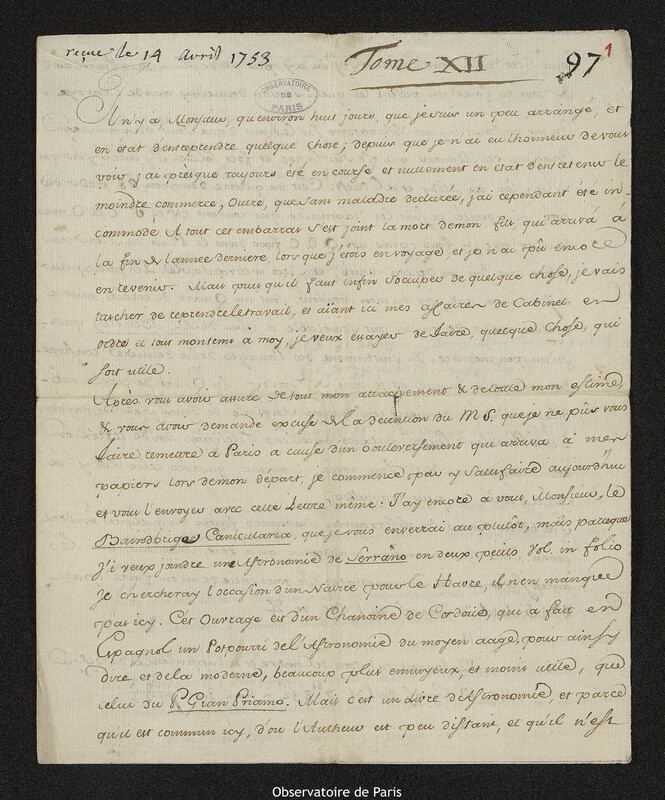 reçue le 14 Avril 1753
Tome XII
97
1
OBSERVATOIRE
DE
PARIS
Il n'y a, Monsieur, qu'environ huit jours, que je suis un peu arrangé, et
en état d'entreprendre quelque chose; depuis que je n'ai eu l'honneur de vous
voir, j'ai presque toujours été en course et nullement en état d'entretenir le
moindre commerce, Outre, que sans maladie declarée, j'ai cependant été in-
commodé. A tout cet embarras s'est joint la mort de mon fils qui arriva à
la fin de l'année derniere, lors que j'étois en voyage, et je n'ai pû encore
en revenir. Mais puis qu'il faut enfin s'occuper de quelque chose, je vais
tascher de reprendre le travail, et aïant ici mes affaires de Cabinet en
ordre et tout mon tems à moy, je veux essayer de faire, quelque chose, qui
soit utile.
Après vous avoir assuré de tout mon attachement & de toute mon estime,
& vous avoir demandé excuse de la detention du M S. que je ne pûs vous
faire remettre à Paris a cause d'un bouleversement qui arriva à mes
papiers lors de mon départ, je commence par y satisfaire aujourd'hui
et vous l'envoyer avec cette Lettre même: J'ay encore à vous, Monsieur, le
Bainsbrige Canicularia, que je vous enverrai au plutôt, mais parceque
j'i veux joindre une Astronomie de Serrano en deux petits Vol. in folio
Je chercheray l'occasion d'un Navire pour le Havre, il n'en manque
pas icy. Cet Ouvrage est d'un Chanoine de Cordoüe, qui a fait en
Espagnol un Potpourri de l'Astronomie du moyen aage, pour ainsy
dire, et de la moderne, beaucoup plus ennuyeux, et moins utile, que
celui du P. Gian Priamo. Mais c'est un Livre d'Astronomie, et parce
qu'il est commun icy, d'ou l'Autheur est peu distant, et qu'il n'est
Observatoire de Paris